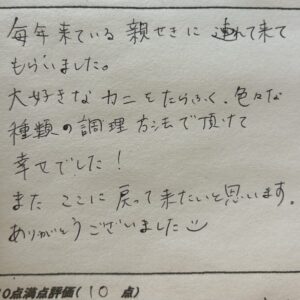 毎年来ている親せきに連れて来て
もらいました。
大好きなカニをたらふく、色々な
種類の調理方法で頂けて
幸せでした！
また ここに戻って来たいと思います。
ありがとうございました
0点満点評価( 10 点)